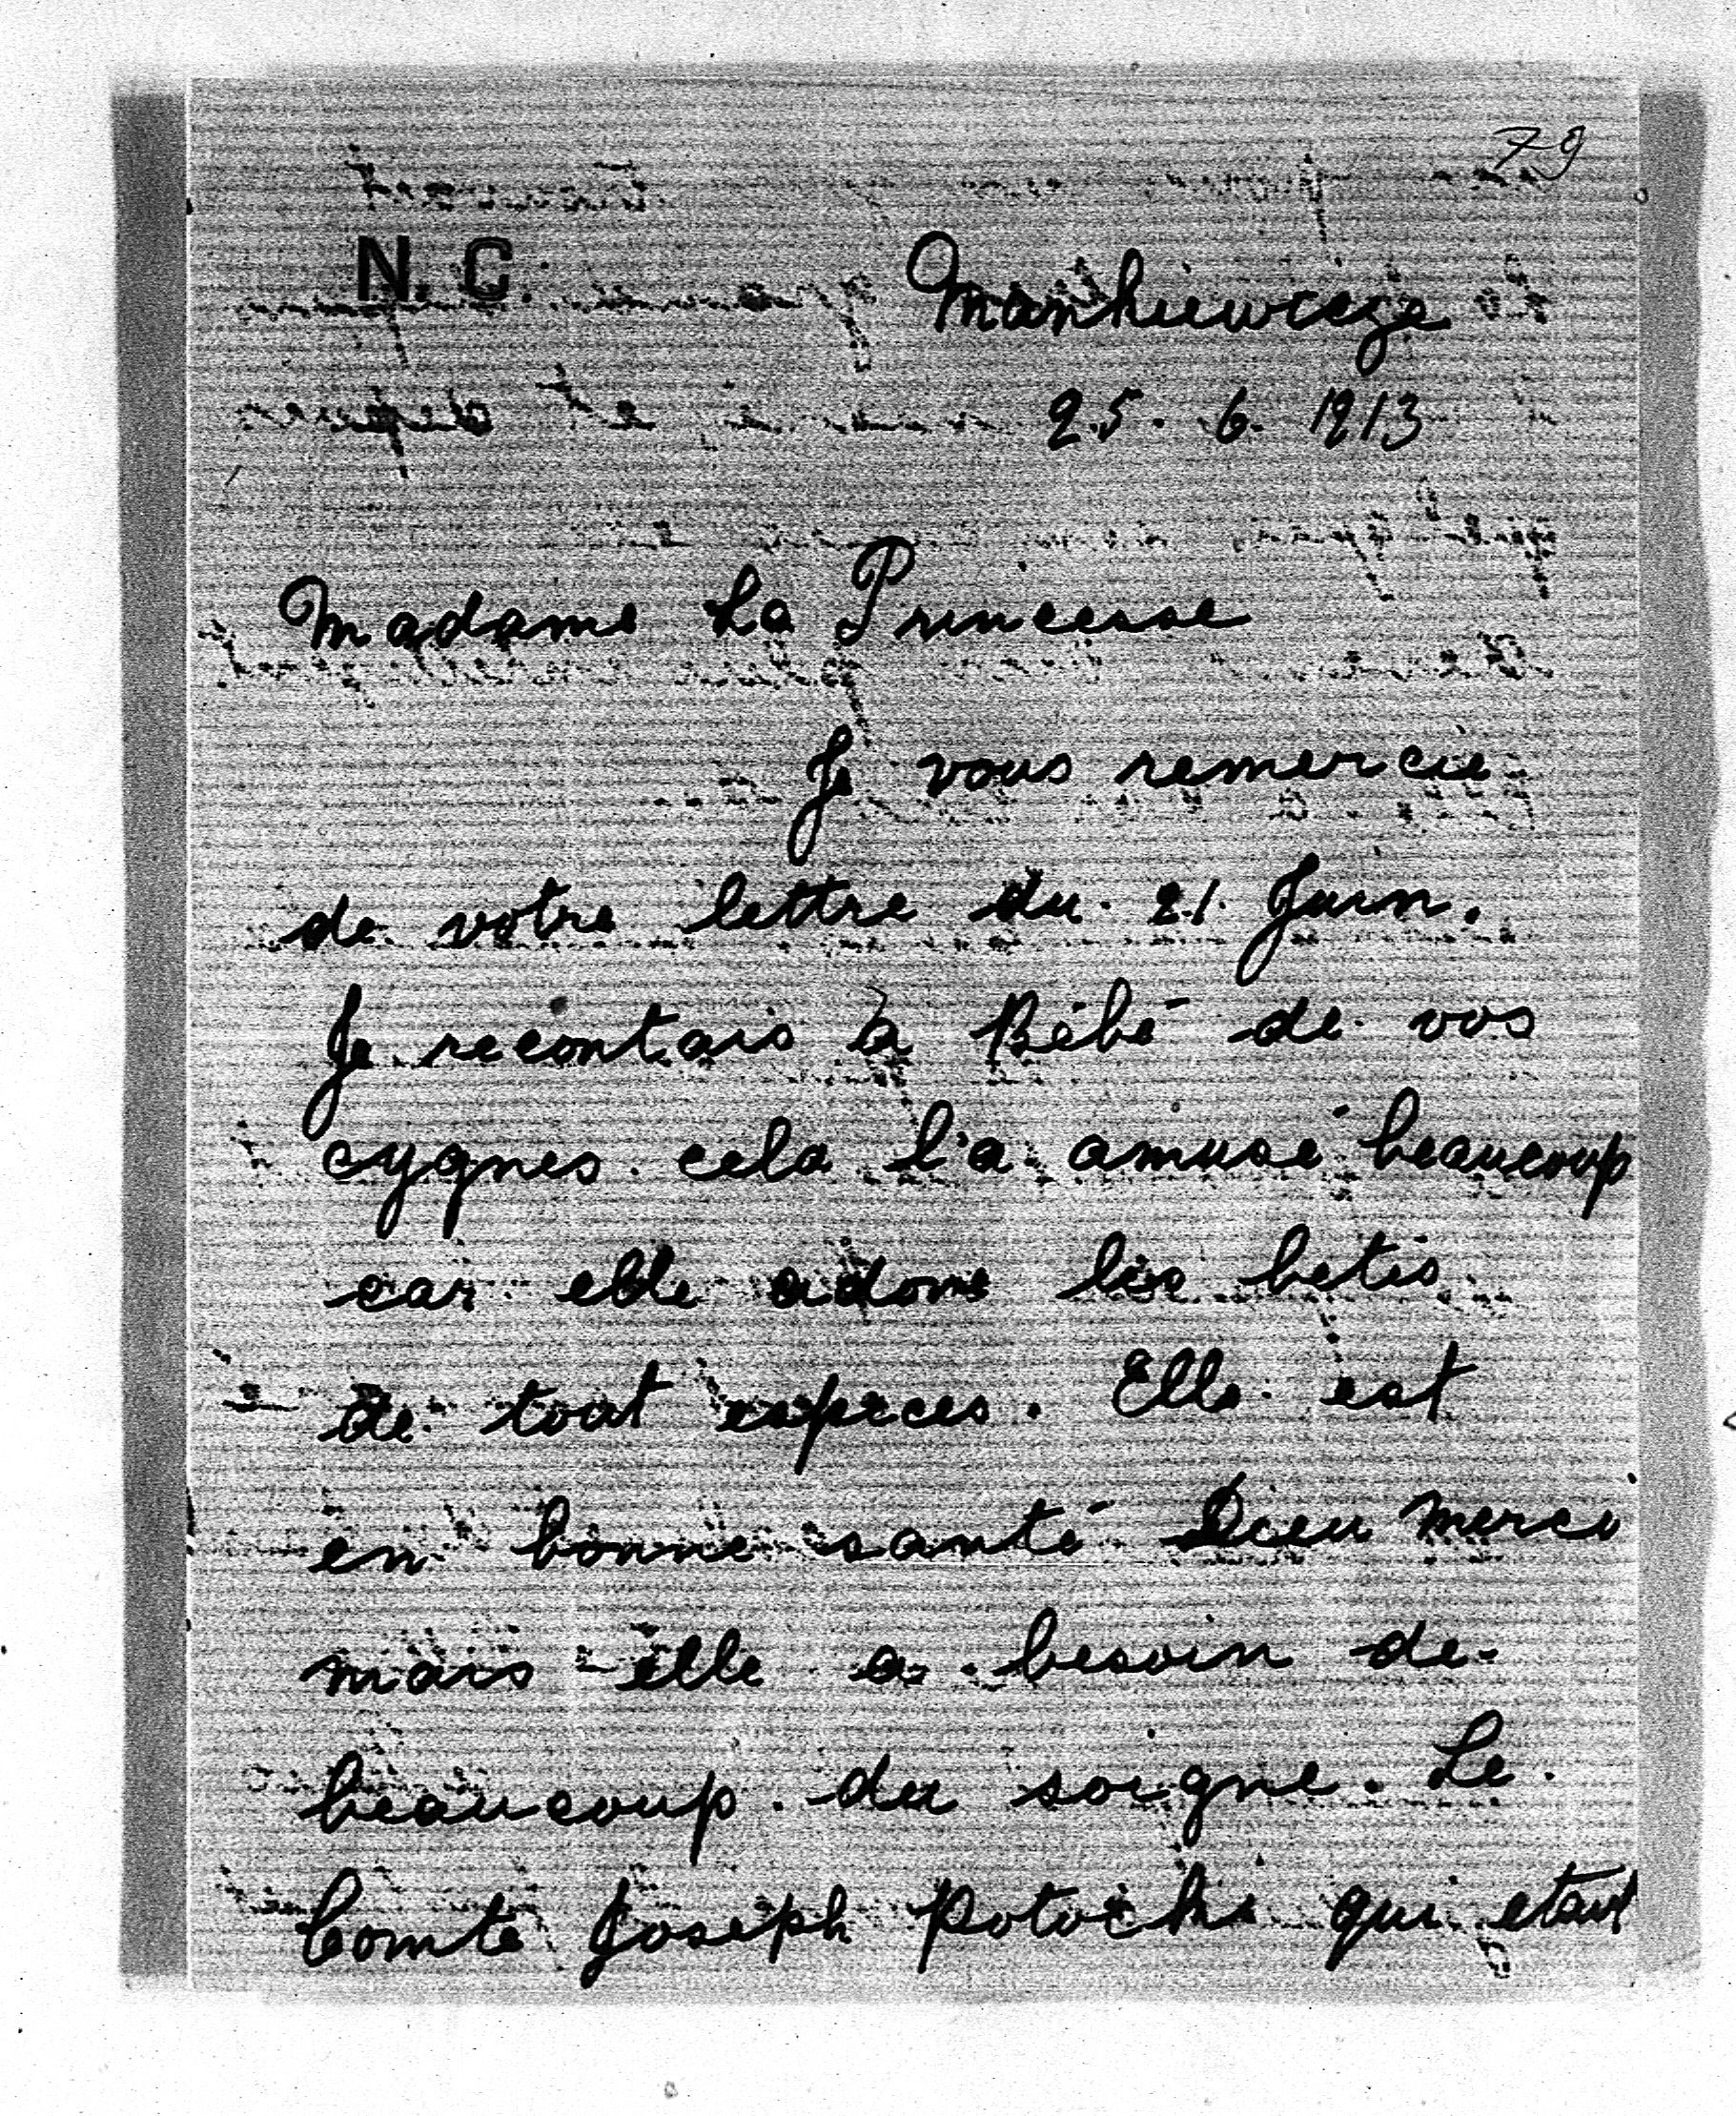 79
N. C.
Mańkiewicze
25. 6. 1913
Madame La Princesse
Je vous remercie
de votre lettre du 21 Juin.
Je recontais à Bébé de vos
cygnes. cela l'a amusé beaucoup
car elle adore les betes
de tout espèces. Elle est
en bonne santé Dieu merci
mais elle a besoin de
beaucoup du soigne. Le
Comte Joseph Potocki qui etait